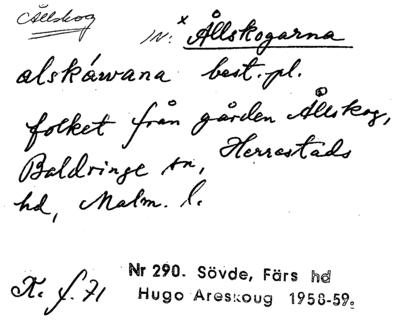 Ållskog
IN: x Ållskogarna
alskáwana best. pl.
folket från gården Ållskog,
Baldringe sn, Herrestads
hd, Malm. l.
K. f. 71
Nr 290. Sövde, Färs hd
Hugo Areskoug 1958-59.